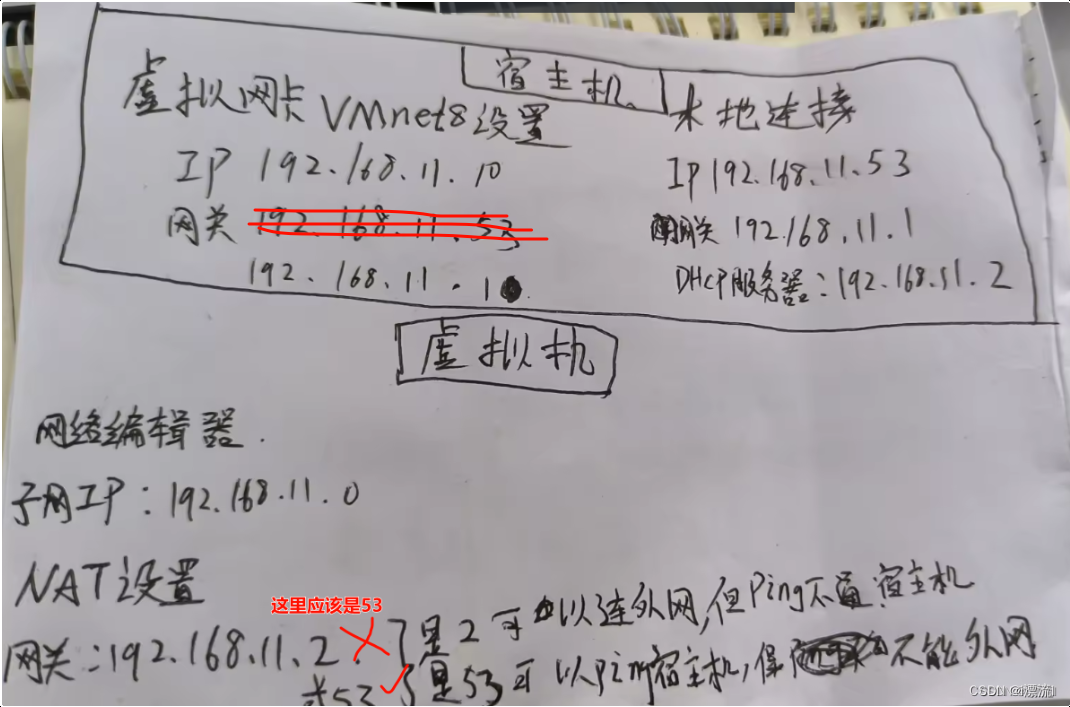 宿主机
虚拟网卡VMnet8设置
IP 192.168.11.10
网关 192.168.11.53
192.168.11.1
本地连接
IP 192.168.11.53
网关 192.168.11.1
DHCP服务器:192.168.11.2
虚拟机
网络编辑器.
子网IP:192.168.11.0
NAT设置
这里应该是53
网关:192.168.11.2.
是2可以连外网,但Ping不通宿主机
是53可以Ping宿主机,但不能外网
53
CSDN @漂流